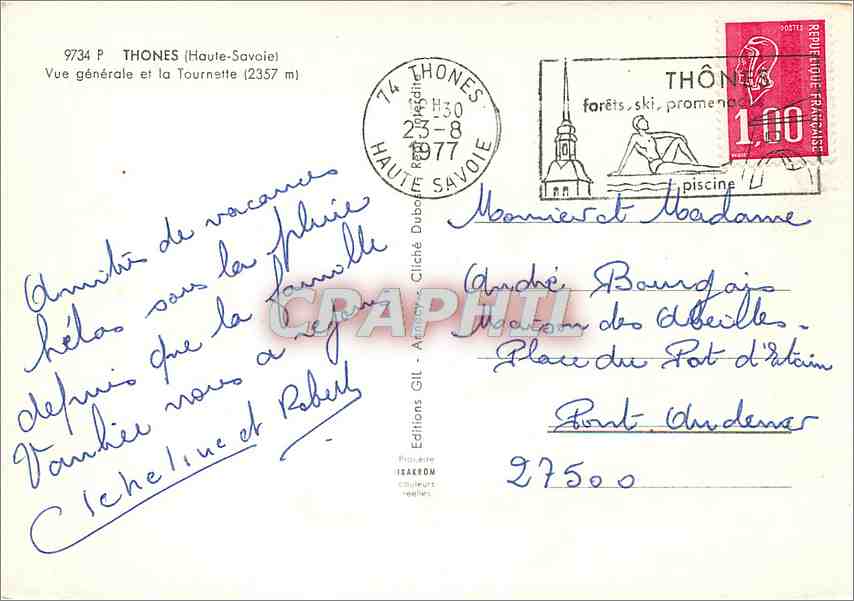 9734 P THONES (Haute-Savoie)
Vue générale et la Tournette (2357 m)
74 THONES
18H30
23-8
1977
HAUTE SAVOIE
THÔNES
forêts, ski, promenad
piscine
POSTES
REPUBLIQUE FRANÇAISE
1,00
Amitiés de vacances
hélas sous la pluie
depuis que la famille
nous a rejoins
et Robert
Editions GIL - Annecy - Cliché Dubost - Rep. Interdite
CRAPHIL
Monsieur et Madame
André Bourgais
Maison des Abeilles.
Place du Pot d'Etain
Pont. Audemer
27500
IRAKROM
couleurs
réelles